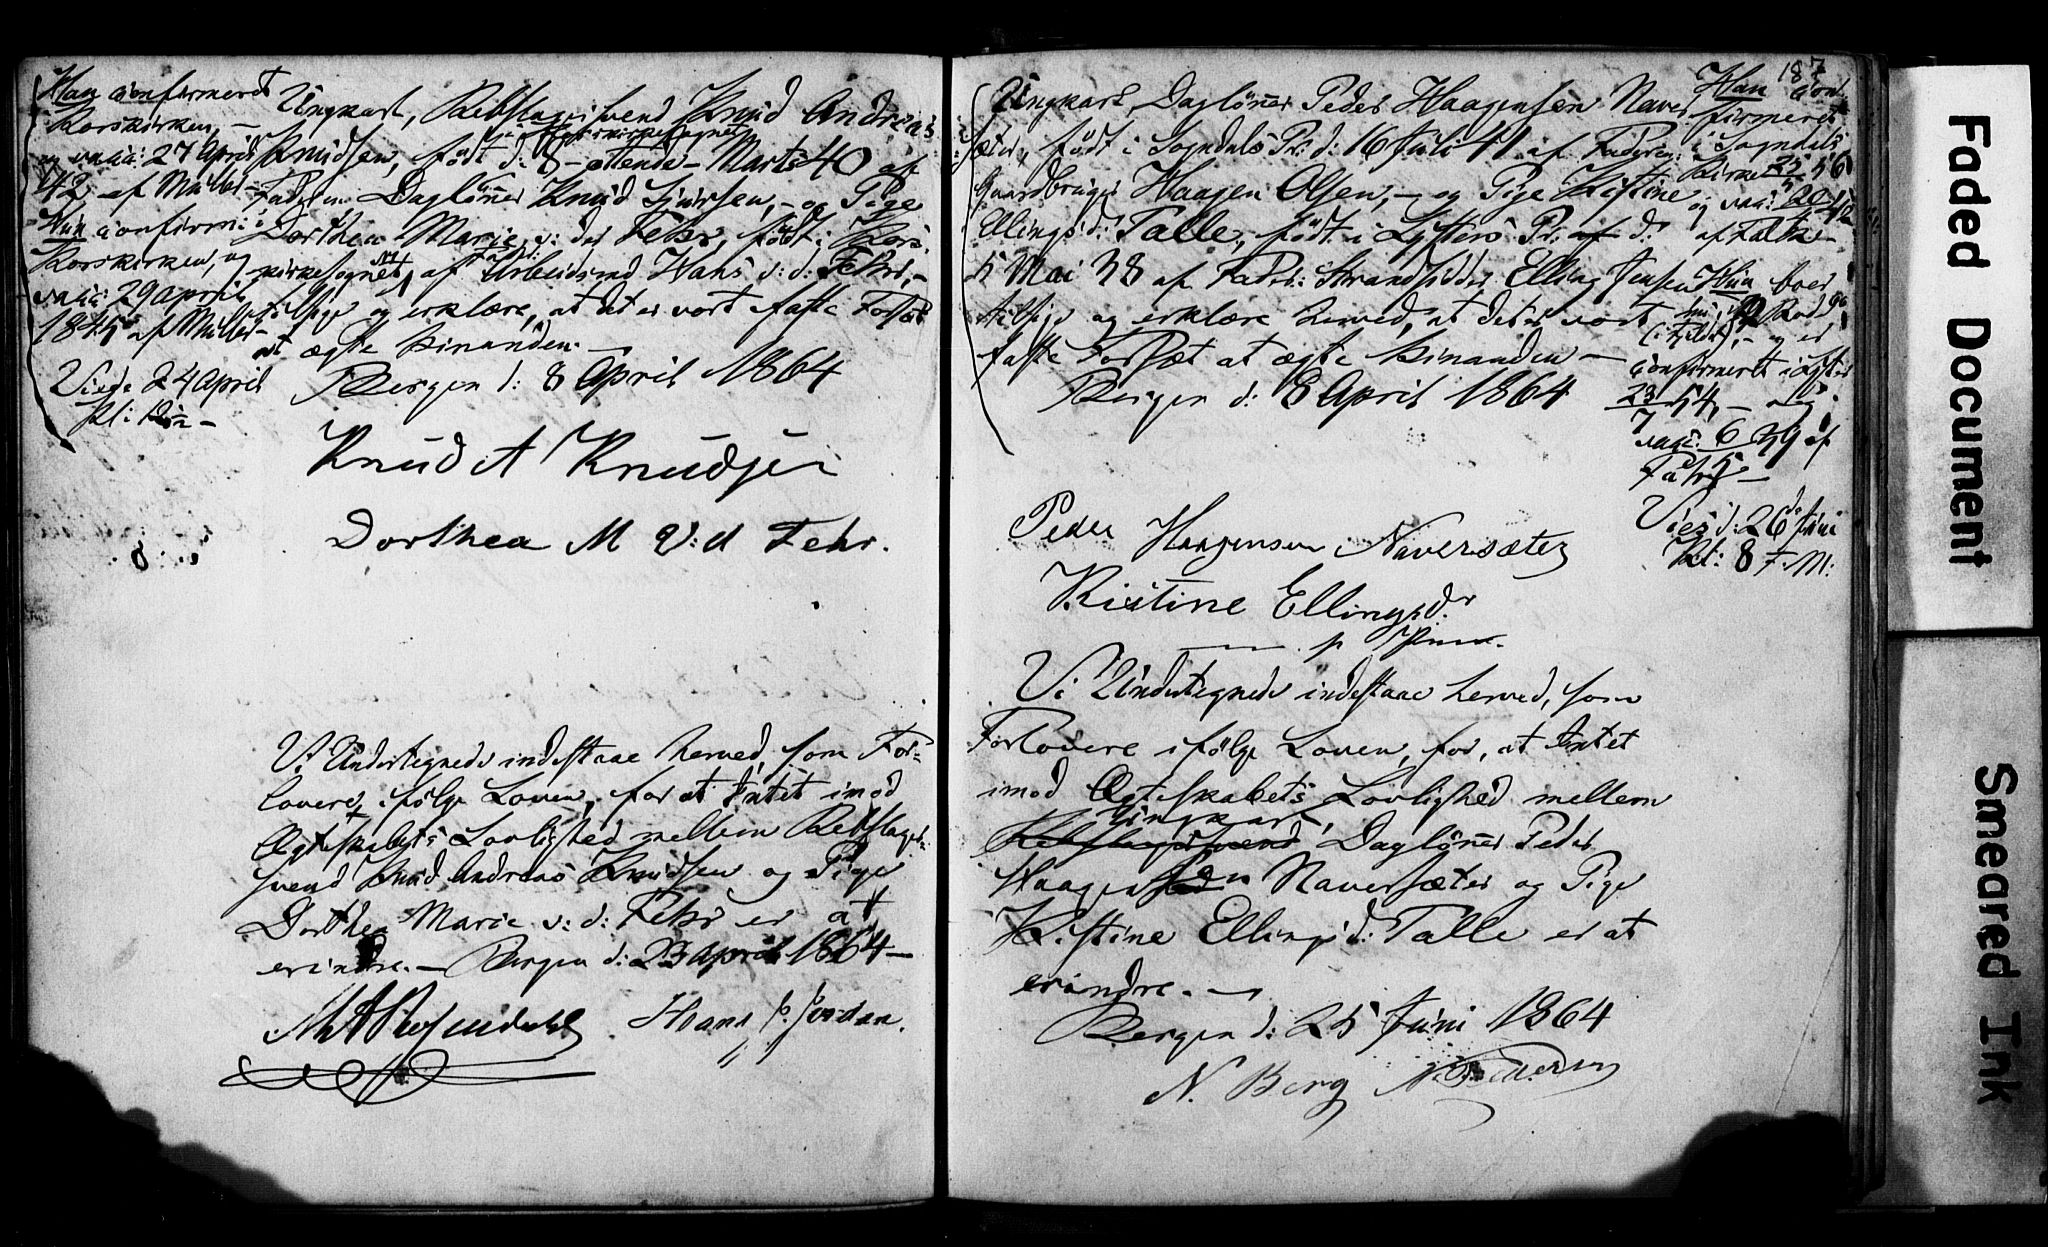 Han confirmeret
Korskirken, —
og vacc: 27 April
42 af Müller —
Hun confirm: i
Korskirken, og
vacc: 29 April
1845 af Müller —
Viede 24 April
Kl: 12
Ungkarl, Rebslagersvend Knud Andreas
Knudsen, född d: 8 – ottende – Marts 40 af
Faderen Daglönner Knud Sjursen, – og Pige
Dorthea Marie v: der Fehr, född i Kors-
kirkesognet, af Arbeidsmd Hans v: d: Fehr, –
tilsige og erklære, at det er vort faste Forsæt
at ægte hinanden. —
Bergen d: 8 April 1864
Knud A Knudsen
Dorthea M V:d Fehr.
Vi Undertegnede indestaae herved, som For-
lovere, ifölge Loven, for at Intet imod
Ægteskabets Lovlighed mellem Rebslager-
svend Knud Andreas Knudsen og Pige
Dorthea Marie v: d: Fehr er at
erindre. — Bergen d: 23 April 1864 —
Hans P. Jordan.
187
Ungkarl, Daglönner Peder Haagensen Naver-
sæter, född i Sogndals Pr: d: 16 Juli 41 af Faderen:
Gaardbruger Haagen Olsen, – og Pige Kistine
Ellingsd: Talle, född i Lysters Pr: af d:
5 Mai 38 af Fader: Strandsidder Elling Jensen
tilsige og erklære herved, at det er vort
faste Forsæt at ægte hinanden —
Bergen d: 8 April 1864
Han con-
firmeret
i Sogndals
Kirke 25/5 56
og vacc: 20/4 42
af Falk —
Hun boer
og er
confirmeret i Lyster
23/7 54, – og
vacc: 6/5 39 af
Vies d: 26de Juni
Kl: 8 F. M:
Peder Haagensen Naversæter
Kistine Ellingsdr
m. p. Pen
Vi Undertegnede indestaae herved, som
Forlovere ifölge Loven, for, at Intet
imod Ægteskabets Lovlighed mellem
Ungkarl,
Rebslagersvend Daglönner Peder
Haagensen Naversæter og Pige
Kistine Ellingsd: Talle er at
erindre. —
Bergen d: 25 Juni 1864
N. Berg
Faded Document
Smeared Ink